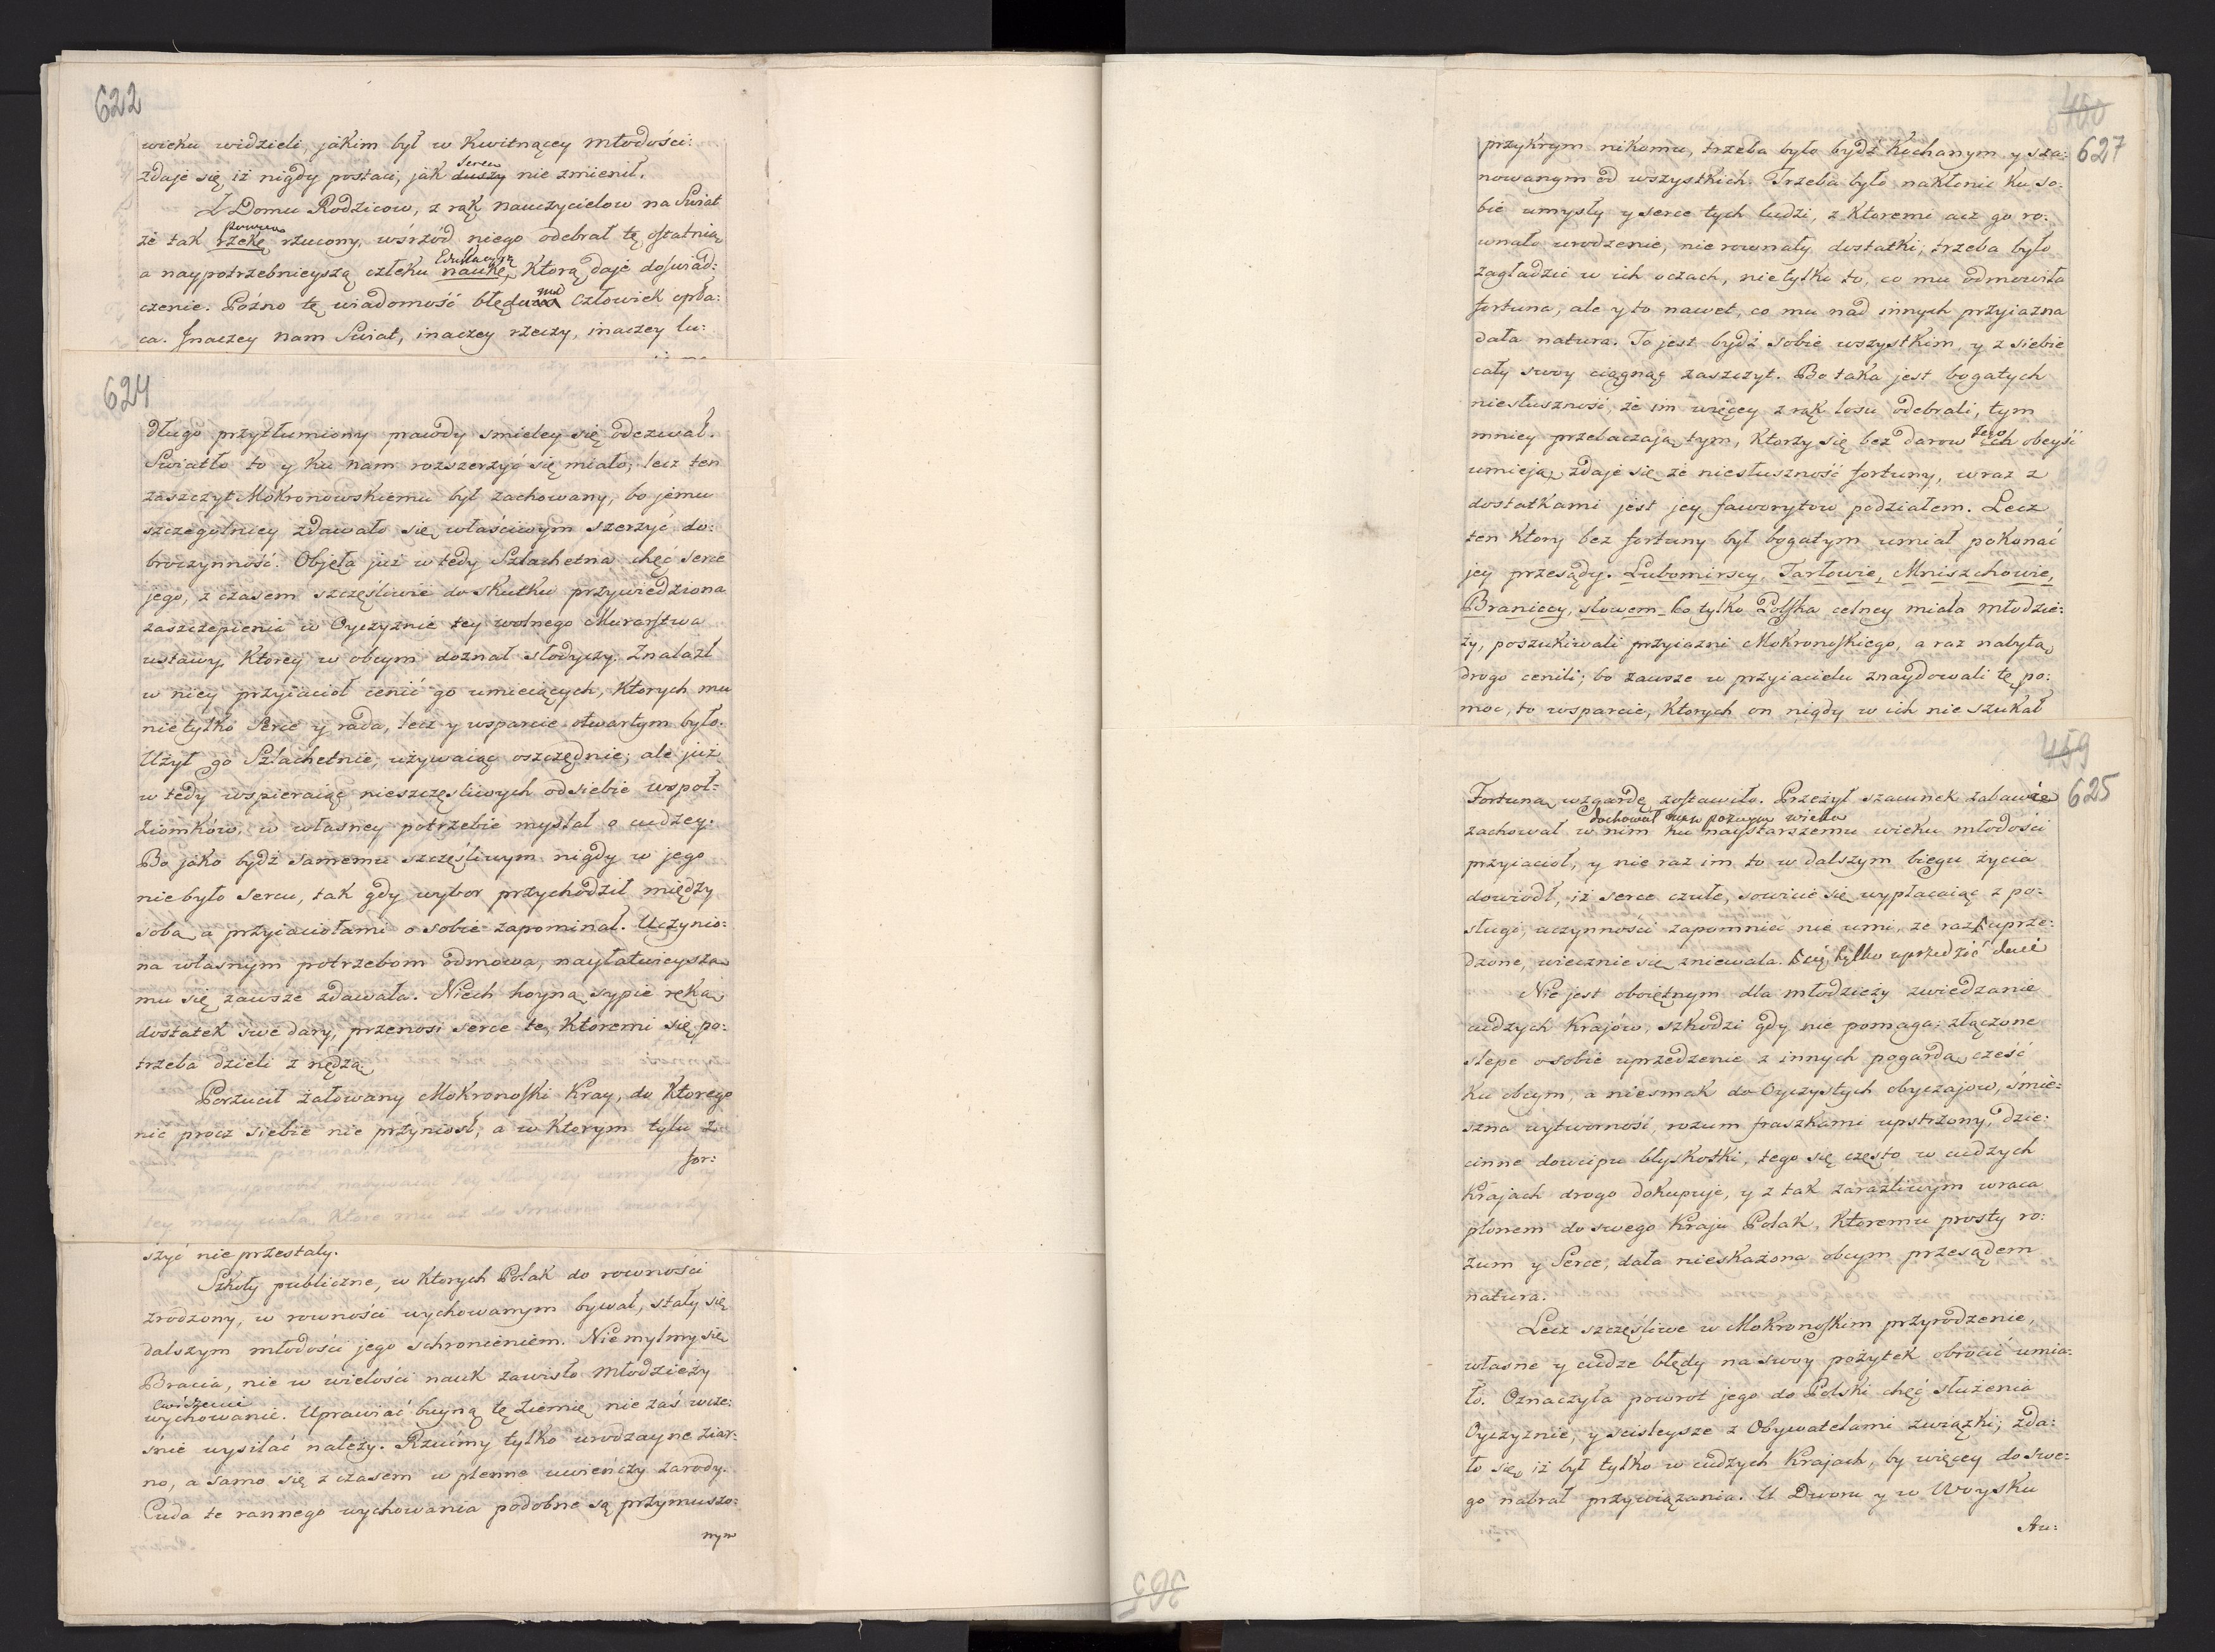 622
wieku widzieli, jakim był w Kwitnącey młodości:
serca
zdaje się, iż nigdy postaci, jak duszy nie zmienił.
Z Domu Rodzicow, z rąk nauczycielow na Swiat
powiem
że tak rzekę rzucony, wśrzód niego odebrał tę ostatnią
Edukacyą
a naypotrzebnieyszą człeku naukę, Ktorą daje doswiad:
czenie. Poźno tę wiadomość błędami Człowiek opła:
ca. Jnaczey nam Swiat, inaczey rzeczy, inaczey lu:
624
długo przytłumiony prawdy smieley się odezwał.
Swiatło to y ku nam rozszerzyć się miało, lecz ten
zaszczyt Mokronowskiemu był zachowany, bo jemu
szczegolniey zdawało się właściwym szerzyć do:
broczynność. Objęła już w tedy Szlachetna chęć serce
jego, z czasem szczęśliwie do skutku przywiedziona
zaszczepienia w Oyczyznie tey wolnego Murarstwa
ustawy, Ktorey w obcym doznał słodyczy. Znalazł
w niey przyiacioł cenić go umieiących, Ktorych mu
nie tylko Serce y rada, lecz y wsparcie otwartym było.
Użył go Szlachetnie, używaiąc oszczędnie; ale już
w tedy wspieraiąc nieszczęsliwych od siebie wspoł:
Ziomków, w własney potrzebie myslał o cudzey.
Bo jako bydź samemu szczęśliwym nigdy w jego
nie było sercu, tak gdy wybor przychodził między
sobą a przyiaciołami o sobie zapominał. Uczynio:
na własnym potrzebom odmowa, nayłatwieysza
mu się zawsze zdawała. Niech hoyną sypie ręką
dostatek swe dary, przenosi serce te, Ktoremi się po:
trzeba dzieli z nędzą
Porzucił żałowany Mokronoski Kray, do Ktorego
nic procz siebie nie przyniosł, a w Ktorym tylu z
for:
szyć nie przestały.
Szkoły publiczne, w Ktorych Polak do rowności
zrodzony, w rowności wychowanym bywał, stały się
dalszym młodości jego schronieniem. Nie mylmy się
Bracia, nie w wielości nauk zawisło młodzieży
ćwiczenie
wychowanie. Uprawiać buyną tę Ziemię, nie zaś wcze:
śnie wysilać należy. Rzućmy tylko urodzayne ziar:
no, a samo się z czasem w plenne uwieńczy zarody.
Cuda te rannego wychowania podobne są przymuszo:
nym
460
627
przykrym nikomu, trzeba było bydź Kochanym y sza:
nowanym od wszystkich. Trzeba było nakłonić ku so:
bie umysły y serce tych ludzi, z Ktoremi acz go ro:
wnało urodzenie, nie rownały dostatki; trzeba było
zagładzić w ich oczach, nie tylko to, co mu odmowiła
fortuna, ale y to nawet, co mu nad innych przyiazna
dała natura. To jest bydź sobie wszystkim, y z siebie
cały swoy ciągnąć zaszczyt. Bo taka jest bogatych
niesłuszność, że im więcey z rąk losu odebrali, tym
mniey przebaczaią tym, Ktorzy się bez darow jego obeyść
umieją, zdaje się że niesłuszność fortuny, wraz z
dostatkami jest jey faworytow podziałem. Lecz
ten Ktory bez fortuny był bogatym umiał pokonać
jey przesądy. Lubomirscy, Tarłowie, Mniszchowie,
Braniccy, słowem co tylko Polska celney miała młodzie:
ży, poszukiwali przyiazni Mokronoskiego, a raz nabytą
drogo cenili; bo zawsze w przyiacielu znaydowali tę po:
moc, to wsparcie, Ktorych on nigdy w ich nie szukał
459
625
Fortuną wzgardę zostawiło. Przeżył szacunek zabawie
dochował w poznym wieku
zachował w nim ku naystarszemu wieku młodości
przyiacioł, y nie raz im to w dalszym biegu życia
dowiodł, iż serce czułe, sowicie się wypłacaiąc z po:
sługi, uczynności zapomnieć nie umi, że raz uprze:
dzone, wiecznie się zniewala. tylko uprzedzić
Nie jest oboiętnym dla młodzieży zwiedzanie
cudzych Krajów, szkodzi gdy nie pomaga: złączone
slepe o sobie uprzedzenie z innych pogardą, cześć
ku obcym, a niesmak do Oyczystych obyczajow, śmie:
szna wytworność, rozum fraszkami upstrzony, dzie:
cinne dowcipu błyskotki, tego się często w cudzych
Krajach drogo dokupuje, y z tak zaraźliwym wraca
plonem do swego Kraju Polak, Ktoremu prosty ro:
zum y Serce, dała nieskażona obcym przesądem
natura.
Lecz szczęśliwe w Mokronoskim przyrodzenie,
własne y cudze błędy na swoy pożytek obrocić umia:
ło. Oznaczyła powrot jego do Polski chęć służenia
Oyczyznie, y scisleysze z Obywatelami związki; zda:
ło się, iż był tylko w cudzych Krajach, by więcey do swe:
go nabrał przywiązania. U Dworu y w Woysku
stu:
365